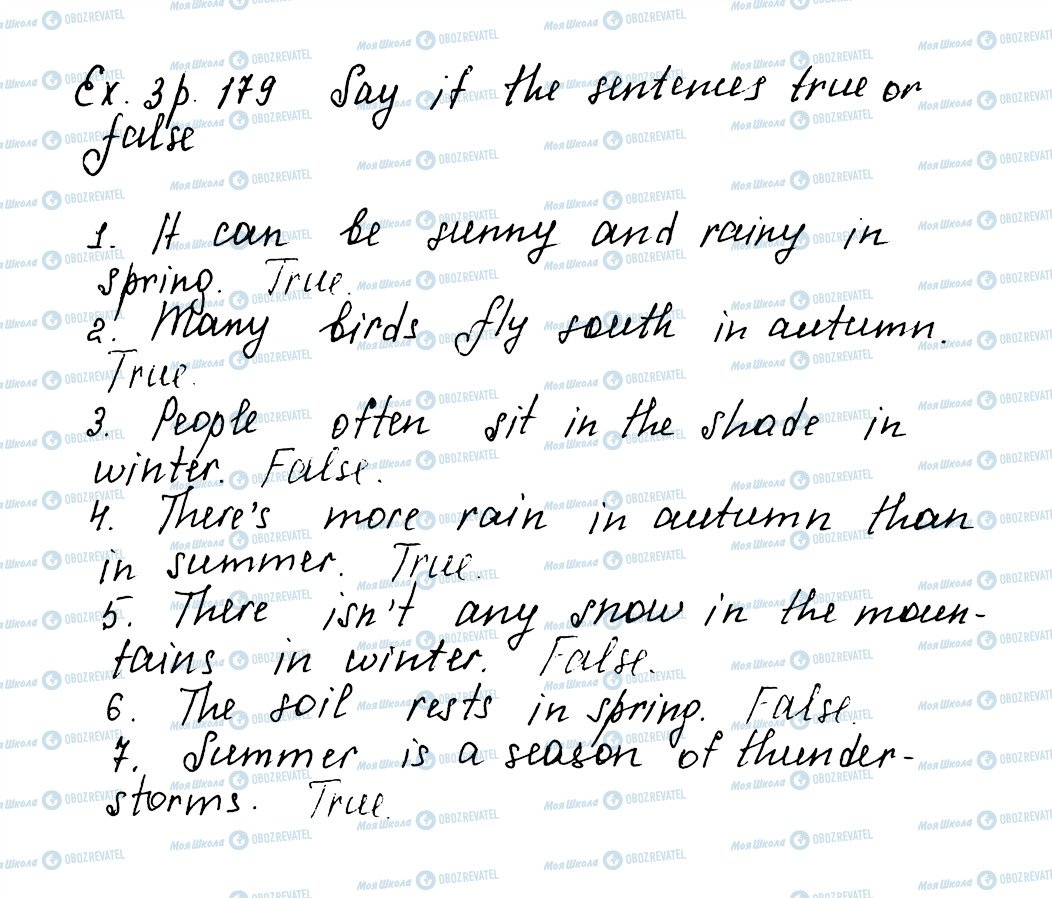 Ex. 3 p. 179 Say if the sentences true or
false
1. It can be sunny and rainy in
spring. True.
2. Many birds fly south in autumn.
True.
3. People often sit in the shade in
winter. False.
4. There's more rain in autumn than
in summer. True.
5. There isn't any snow in the moun-
tains in winter. False.
6. The soil rests in spring. False.
7. Summer is a season of thunder-
storms. True.
МояШкола OBOZREVATEL